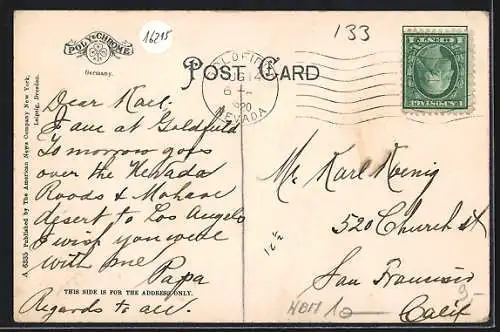 133
16215
POLY-CHROME
Germany.
POST CARD
GOLDFIELD
AUG 14
6 PM
1920
NEVADA
1 CENT 1
U.S. POSTAGE
A 6353 Published by The American News Company New York.
Leipzig, Dresden.
Dear Karl.
I am at Goldfield
To morrow goes
over the Nevada
Roads & Mohave
desert to Los Angelo
I wish you were
with me
Papa
Regards to all.
THIS SIDE IS FOR THE ADDRESS ONLY.
Mr Karl Koenig
520 Church st
San Francisco
Calif
12½